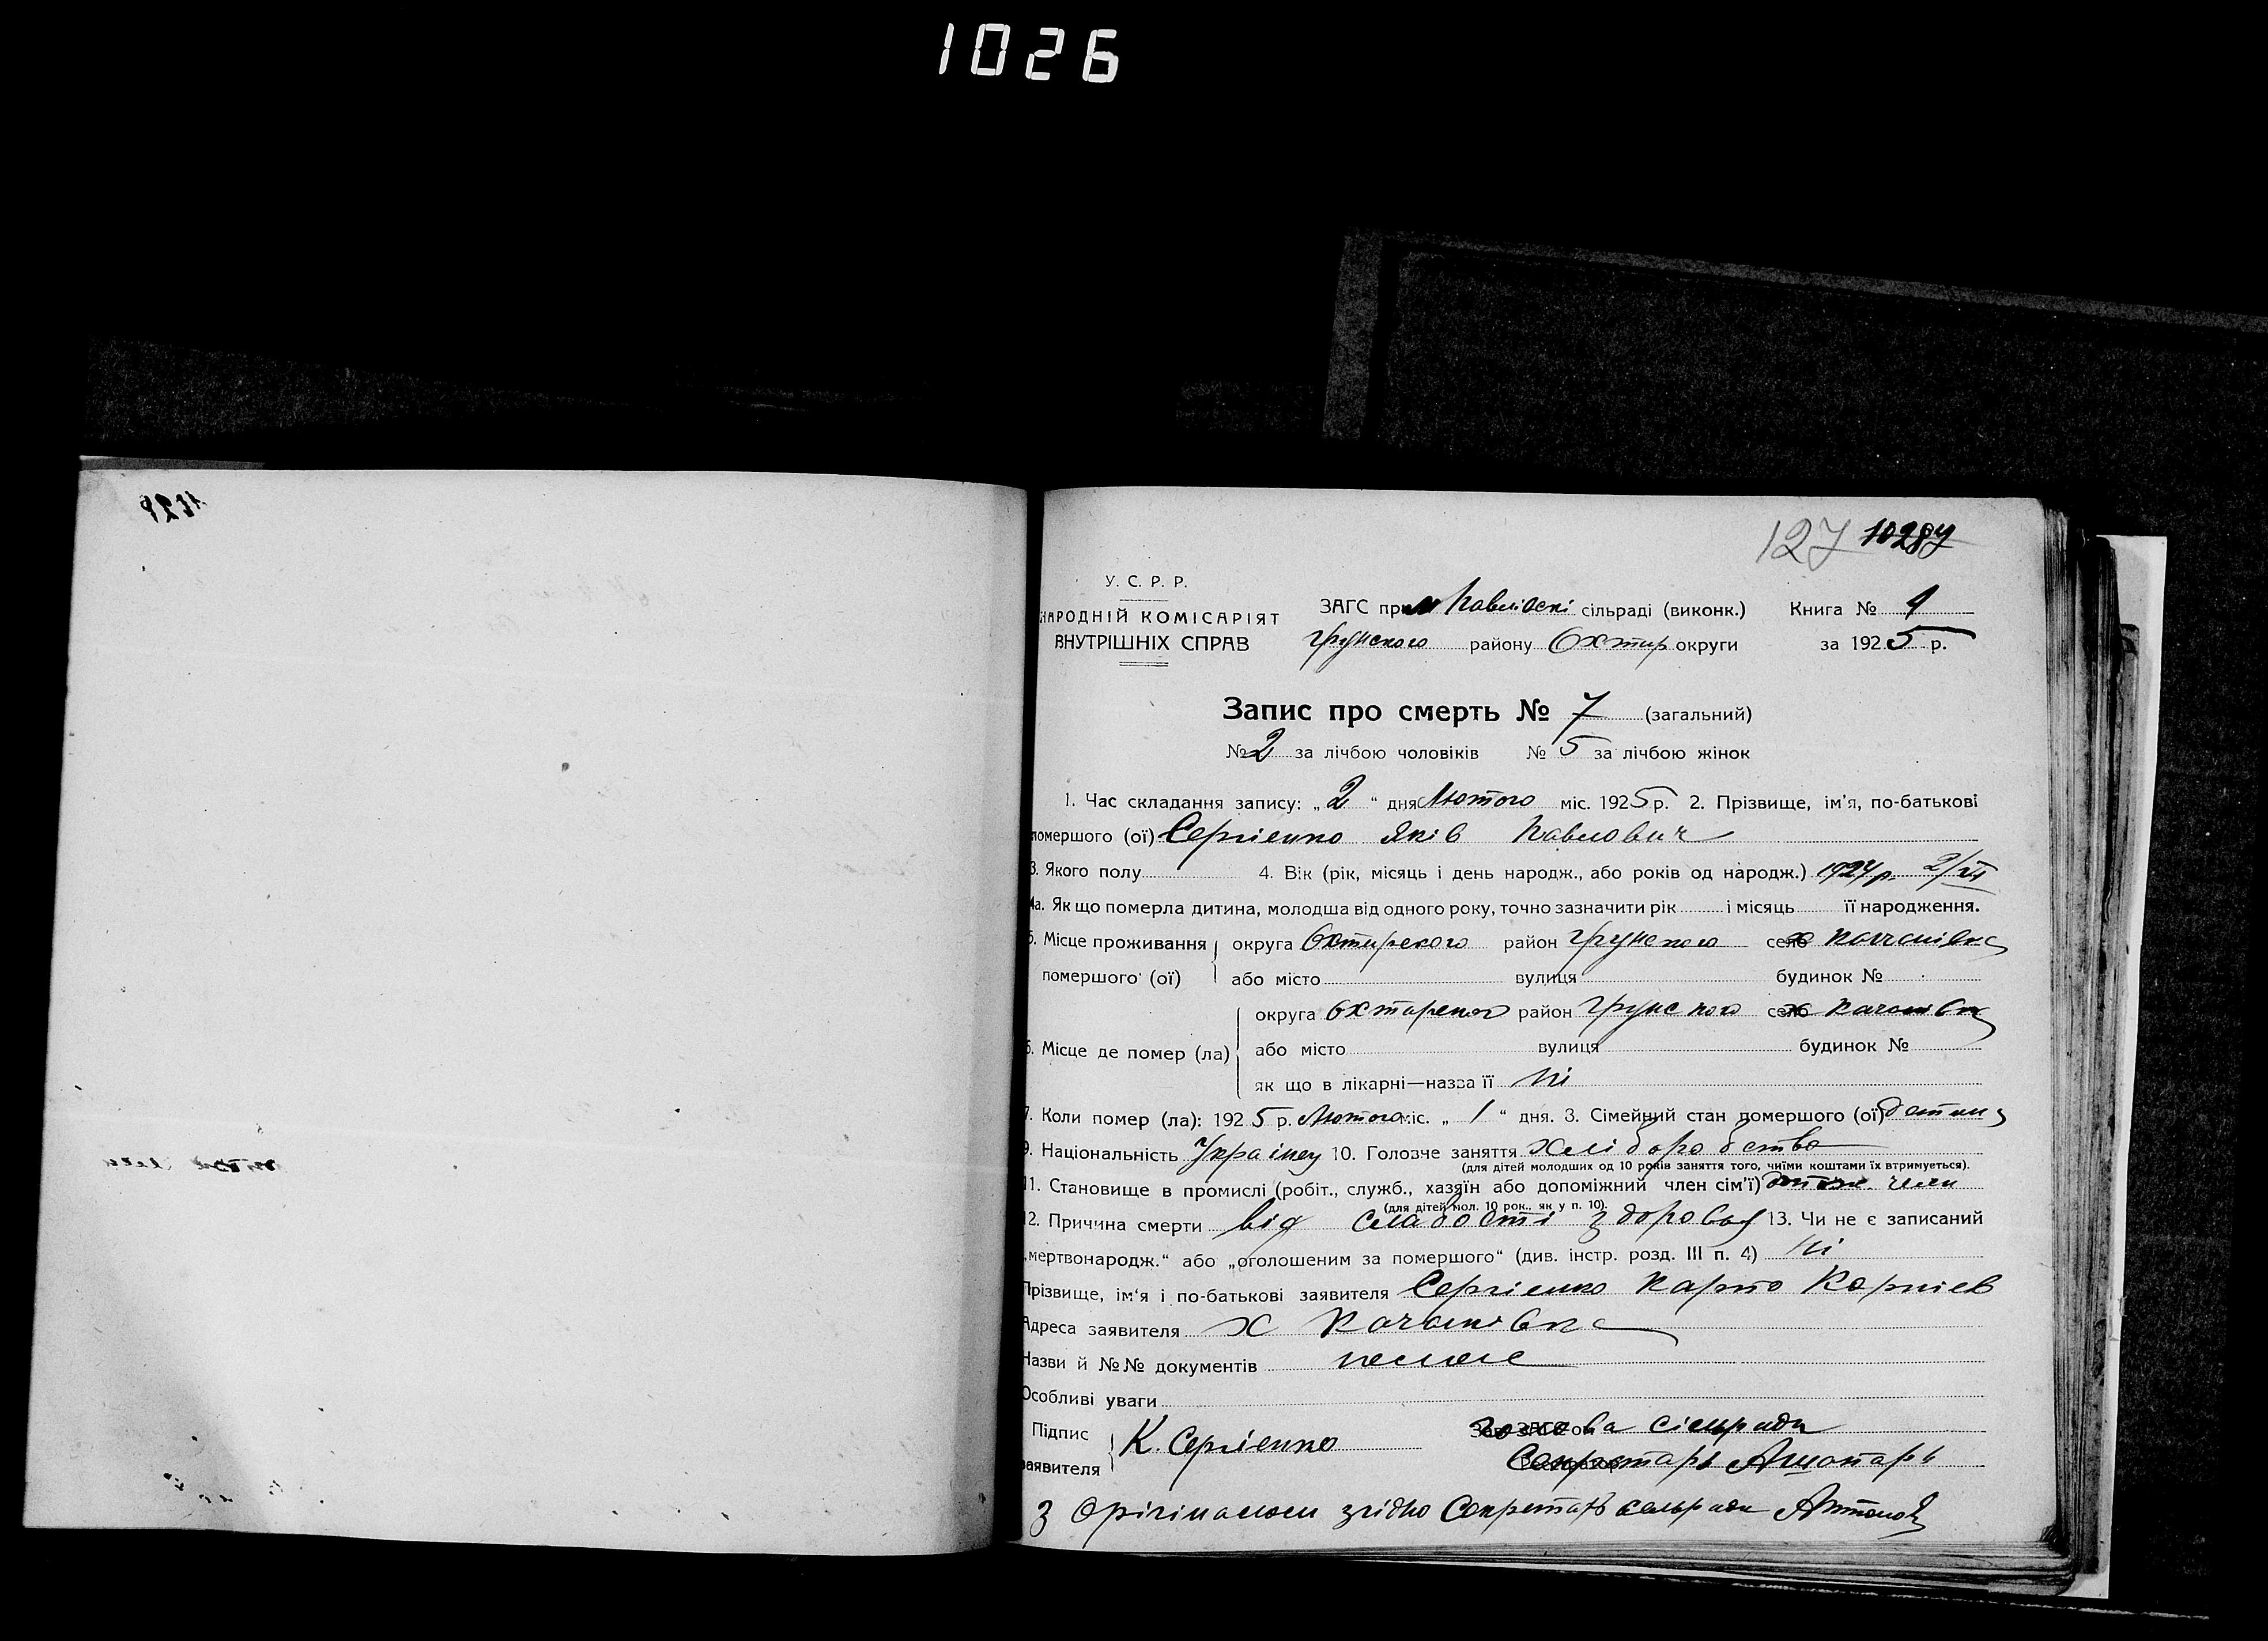 1026
127 1028
У. С. Р. Р.
НАРОДНІЙ КОМІСАРІЯТ
ВНУТРІШНІХ СПРАВ
ЗАГС при Павлівскі сільраді (виконк.) Книга № 1
Грунского району Охтир округи за 1925 р.
Запис про смерть № 7 (загальний)
№ 2 за лічбою чоловіків № 5 за лічбою жінок
1. Час складання запису: „2“ дня Лютого міс. 1925 р. 2. Прізвище, ім'я, по-батькові
помершого (ої) Сергіенко Яків Павлович
3. Якого полу 4. Вік (рік, місяць і день народж., або років од народж.) 1924 р. 2/VI
4а. Як що померла дитина, молодша від одного року, точно зазначити рік і місяць її народження.
5. Місце проживання округа Охтирского район Грунского село х Качанівка
помершого (ої) або місто вулиця будинок №
округа Охтирского район Грунского село х Качанівка
6. Місце де помер (ла) або місто вулиця будинок №
як що в лікарні—назва її Ні
7. Коли помер (ла): 1925 р. Лютого міс. „1“ дня. 3. Сімейний стан помершого (ої) детина
9. Національність Українец 10. Головче заняття хліборобство
(для дітей молодших од 10 років заняття того, чиїми коштами їх втримується).
11. Становище в промислі (робіт., служб., хазяїн або допоміжний член сім'ї) член
(для дітей мол. 10 рок., як у п. 10).
12. Причина смерти від слабості здоровья 13. Чи не є записаний
„мертвонародж.“ або „оголошеним за помершого“ (див. інстр. розд. III п. 4) Ні
Прізвище, ім'я і по-батькові заявителя Сергіенко Карпо Корніев
Адреса заявителя х Качанівка
Назви й №№ документів немае
Особливі уваги
Підпис
заявителя К. Сергіенко
Голова сільради
Секретарь
З Оригіналом згідно Секретарь сельради